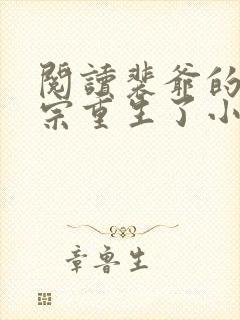 閱讀裴爺的
宗重生了小
章魯生